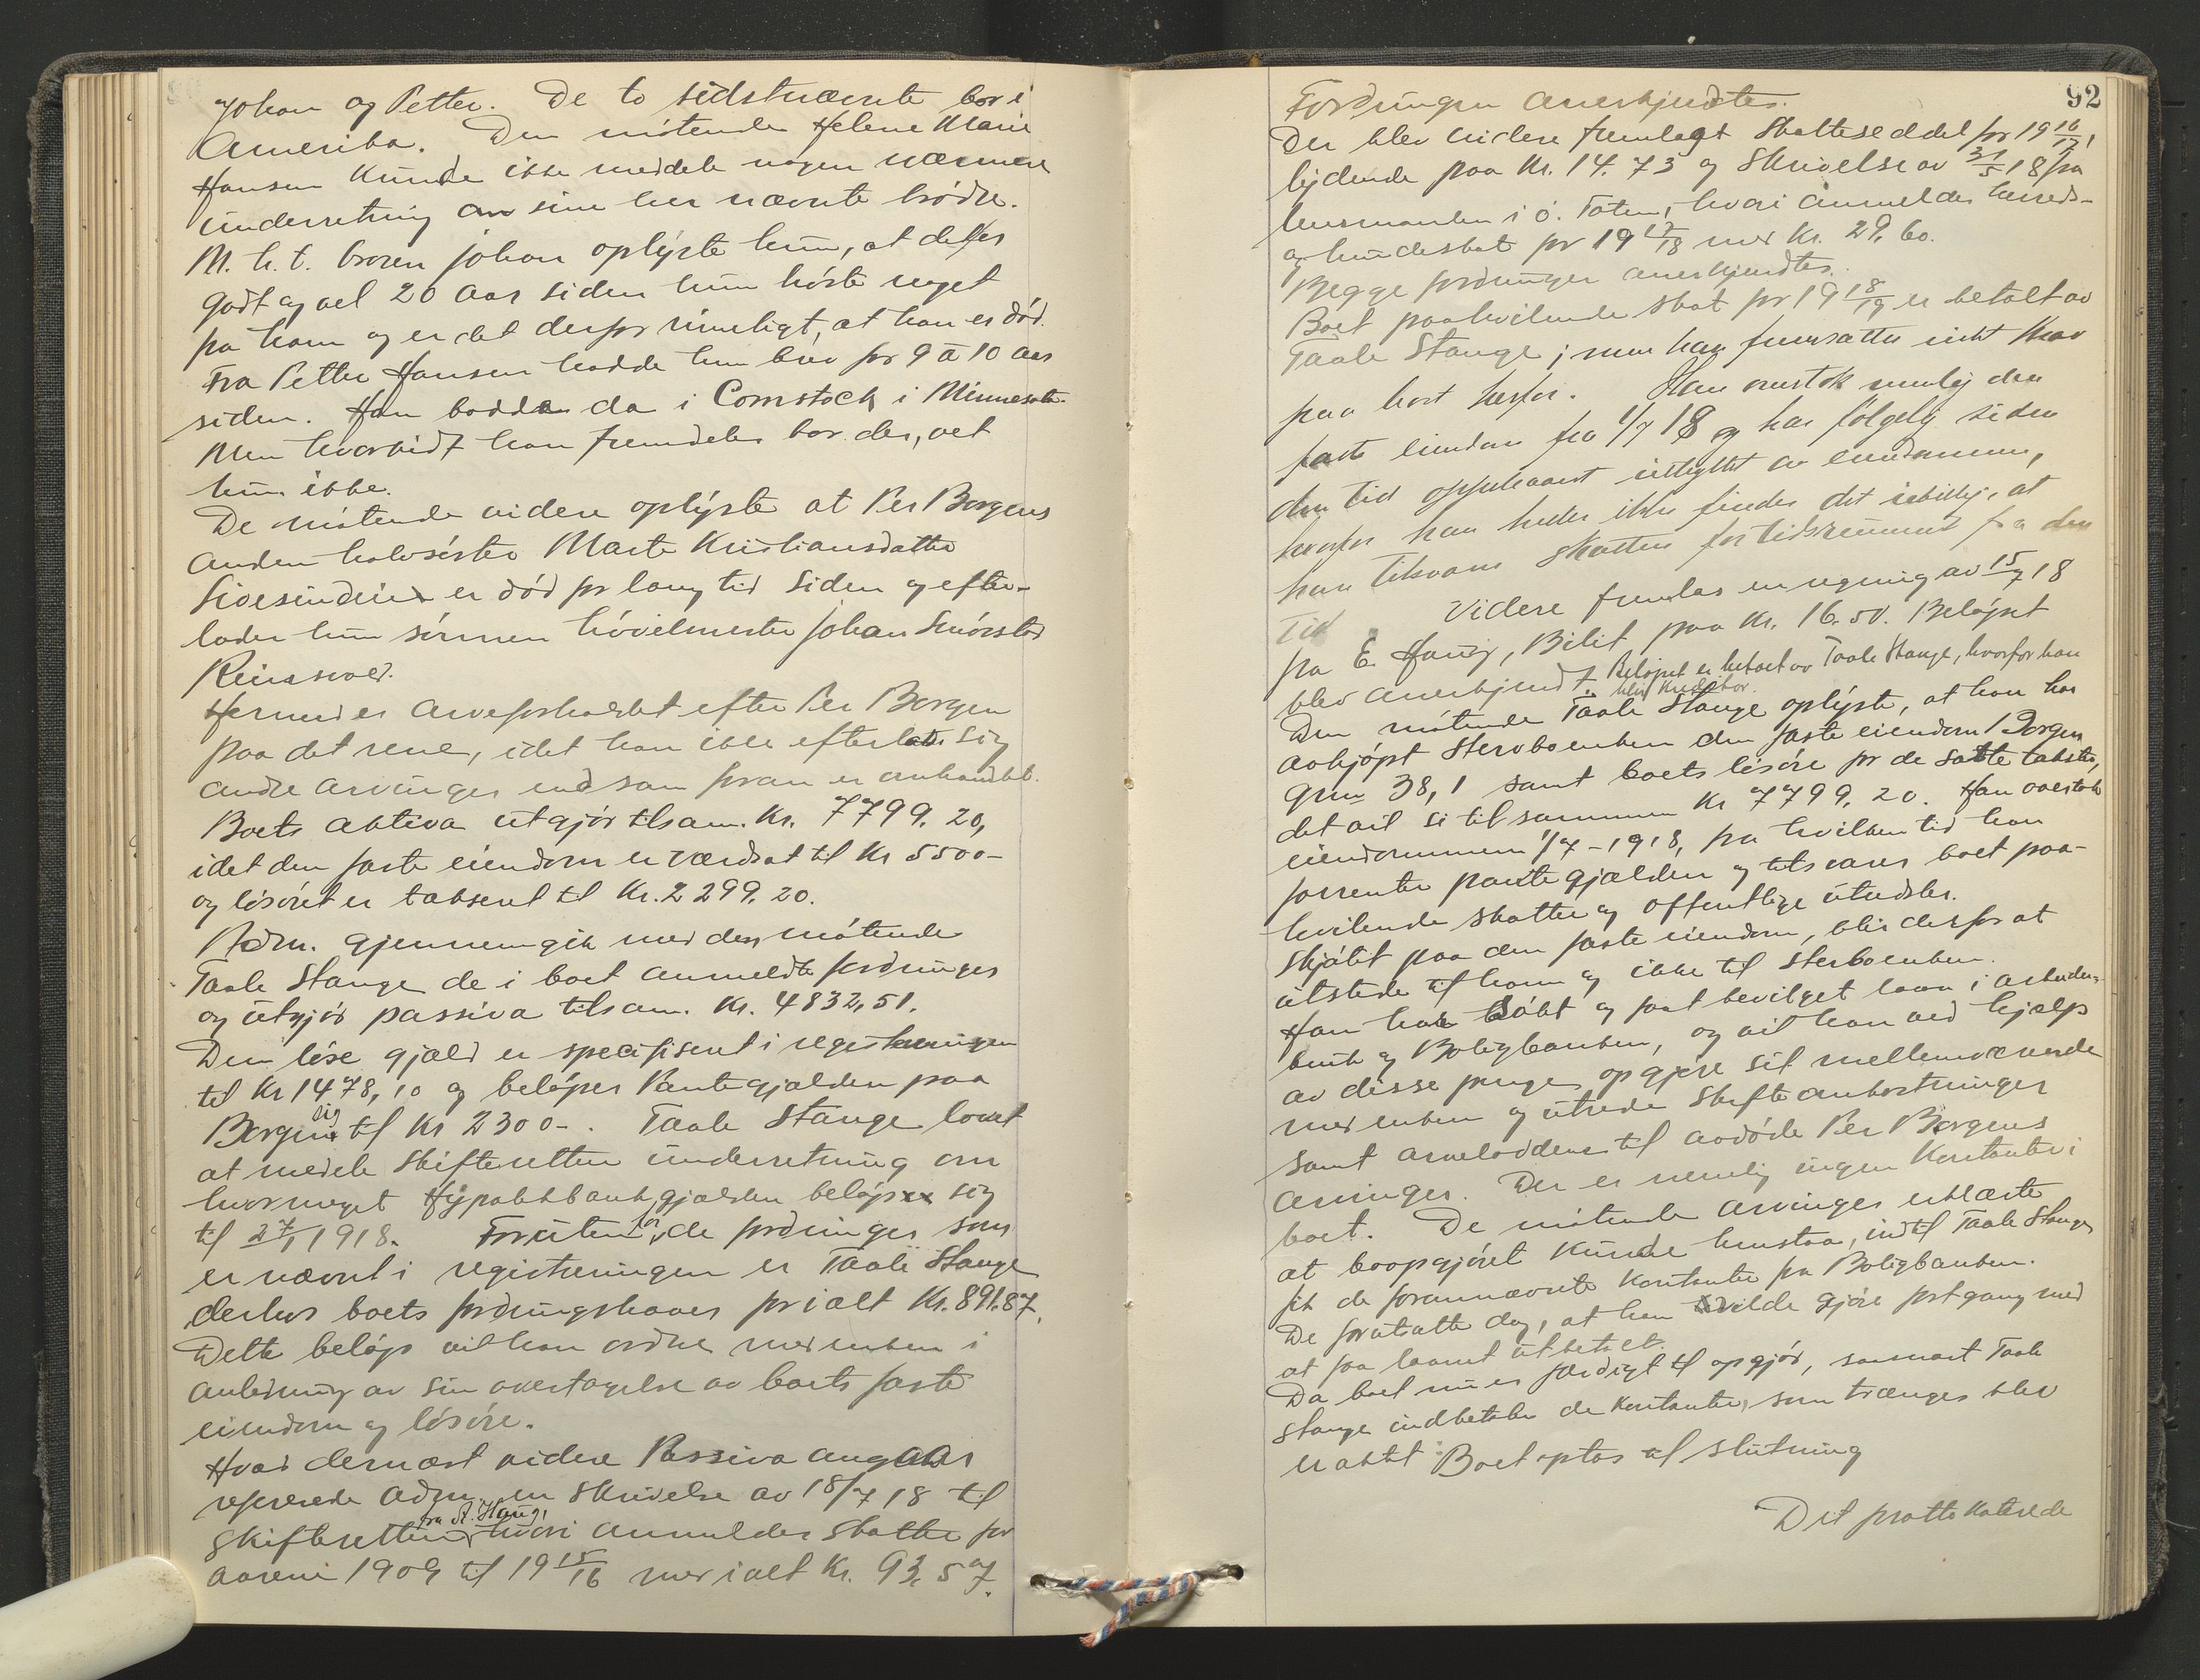 Johan og Petter. De to sidstnævnte bor i
Amerika. Den møtende Helene Marie
Hansen kunde ikke meddele nogen nærmere
underretning om sine her nævnte brødre.
M. h. t. broren Johan oplyste hun, at det er
godt og vel 20 aar siden hun hørte noget
fra ham og er det derfor rimeligt, at han er død.
Fra Petter Hansen hadde hun brev for 9 à 10 aar
siden. Han bodde da i Comstock i Minnesota.
Men hvorvidt han fremdeles bor der, vet
hun ikke.
De møtende videre oplyste at Per Borgens
anden halvsøster Marte Kristiansdatter
er død for lang tid siden og efter-
lader hun sønnen høvelmester Johan
Reinsvold.
Hermed er arveforholdet efter Per Borgen
paa det rene, idet han ikke efterlot sig
andre arvinger end som foran er omhandlet.
Boets aktiva utgjør tilsam. Kr. 7799.20,
idet den faste eiendom er værdsat til Kr 5500-
og løsøret er taksert til Kr. 2299.20.
Adm. gjennemgik med den møtende
Taale Stange de i boet anmeldte fordringer
og utgjør passiva tilsam. Kr. 4832,51.
Den løse gjæld er specifisert i registreringen
til Kr 1478,10 og beløper Pantegjælden paa
Borgen sig til Kr 2300-. Taale Stange lovet
at meddele Skifteretten underretning om
hvormeget Hypotekbankgjælden beløp sig
til 27/1 1918. Foruten for de fordringer som
er nævnt i registreringen er Taale Stange
derhos boets fordringshaver for ialt Kr. 891.87.
Dette beløp vil han ordne med enken i
anledning av sin overtagelse av boets faste
eiendom og løsøre.
Hvad dernæst videre Passiva angaar
refererede adm. en skrivelse av 18/7 18 til
Skifteretten fra A. Haug, hvori anmeldes skatter for
aarene 1909 til 19 15/16 med ialt Kr. 93,57.
92
Fordringen anerkjendtes.
Der blev videre fremlagt Skatteseddel for 19 16/17,
lydende paa Kr. 14.73 og Skrivelse av 31/5 18 fra
lensmanden i Ø. Toten, hvori anmeldes herreds-
og hundeskat for 19 17/18 med Kr. 29.60.
Begge fordringer anerkjendtes.
Boet paahvilende skat for 19 18/19 er betalt av
Taale Stange; men han fremsatte intet krav
paa boet herfor. Han overtok nemlig den
faste eiendom fra 1/7 18 og har følgelig siden
den tid oppebaaret utbyttet av eiendommen,
hvorfor han heller ikke finder det ubillig, at
han tilsvarer skatten for tidsrummet fra den
tid Videre fremlas en regning av 15/7 18
fra E. Haug, Bilit paa Kr. 16.50. Beløpet
blev anerkjendt. Beløpet er betalt av Taale Stange, hvorfor han
blir Kreditor.
Den møtende Taale Stange oplyste, at han har
avkjøpt Stervboenken den faste eiendom Borgen
Grn 38,1 samt boets løsøre for de satte takster,
det vil si tilsammen Kr 7799.20. Han overtok
eiendommen 1/7 - 1918, fra hvilken tid han
forrenter pantegjælden og tilsvarer boet paa-
hvilende skatter og offentlige utredsler.
Skjøtet paa den faste eiendom, blir derfor at
utstede til ham og ikke til Sterboenken.
Han har søkt og faat bevilget laan i Arbeider-
bruk og Boligbanken, og vil han ved hjælp
av disse penger opgjøre sit mellemværende
med enken og utrede Skifteomkostninger
samt arveloddene til avdøde Per Borgens
arvinger. Der er nemlig ingen Kontanter i
boet. De møtende arvinger erklærte
at boopgjøret kunde henstaa, indtil Taale Stange
fik de forannævnte Kontanter fra Boligbanken.
De forutsatte dog, at han vilde gjøre fortgang med
at faa laanet utbetalt.
Da boet nu er færdigt til opgjør, saasnart Taale
Stange indbetaler de kontanter, som trænges blev
erakt: Boet optas til slutning
Det protokolerede